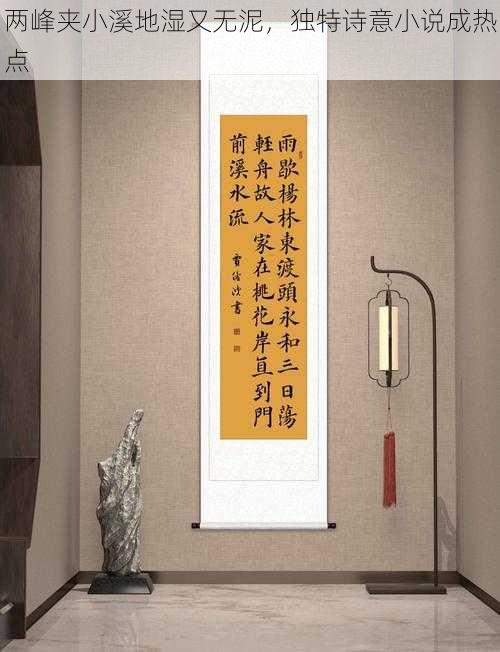 两峰夹小溪地湿又无泥，独特诗意小说成热
点
雨歇楊林東渡頭永和三日蕩
輕舟故人家在桃花岸直到門
前溪水流
書